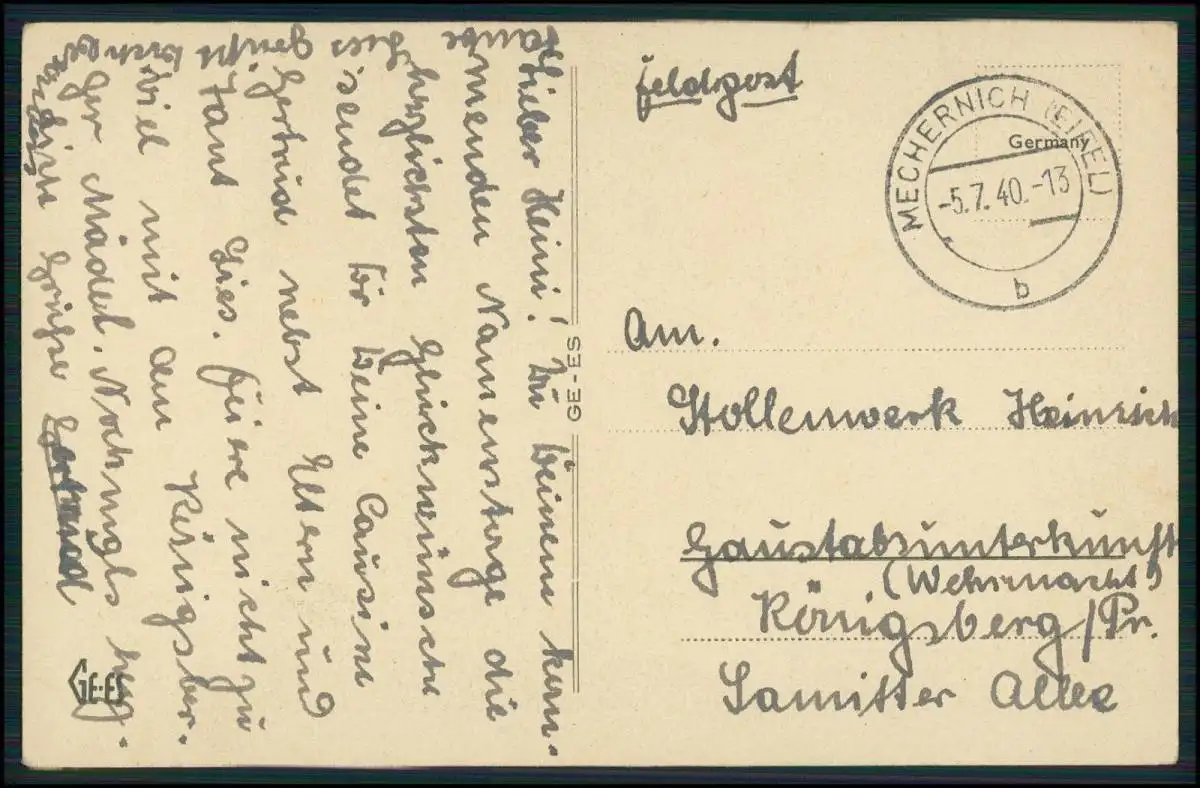 Lieber Heini! Zu Deinem kom-
menden Namenstage die
herzlichsten Glückwünsche
sendet Dir Deine Cousine
Gertrud nebst Eltern und
Tant Lies. feiere nicht zu
viel mit den Königsber-
ger Mädel. Nochmals herz-
liche Grüße Gertrud
Feldpost
MECHERNICH (EIFEL)
-5.7.40.-13
b
Germany
An.
Stollenwerk Heinrich
Gaustabsunterkunft
(Wehrmacht)
Königsberg/Pr.
Samitter Allee
GE-ES
GE-ES